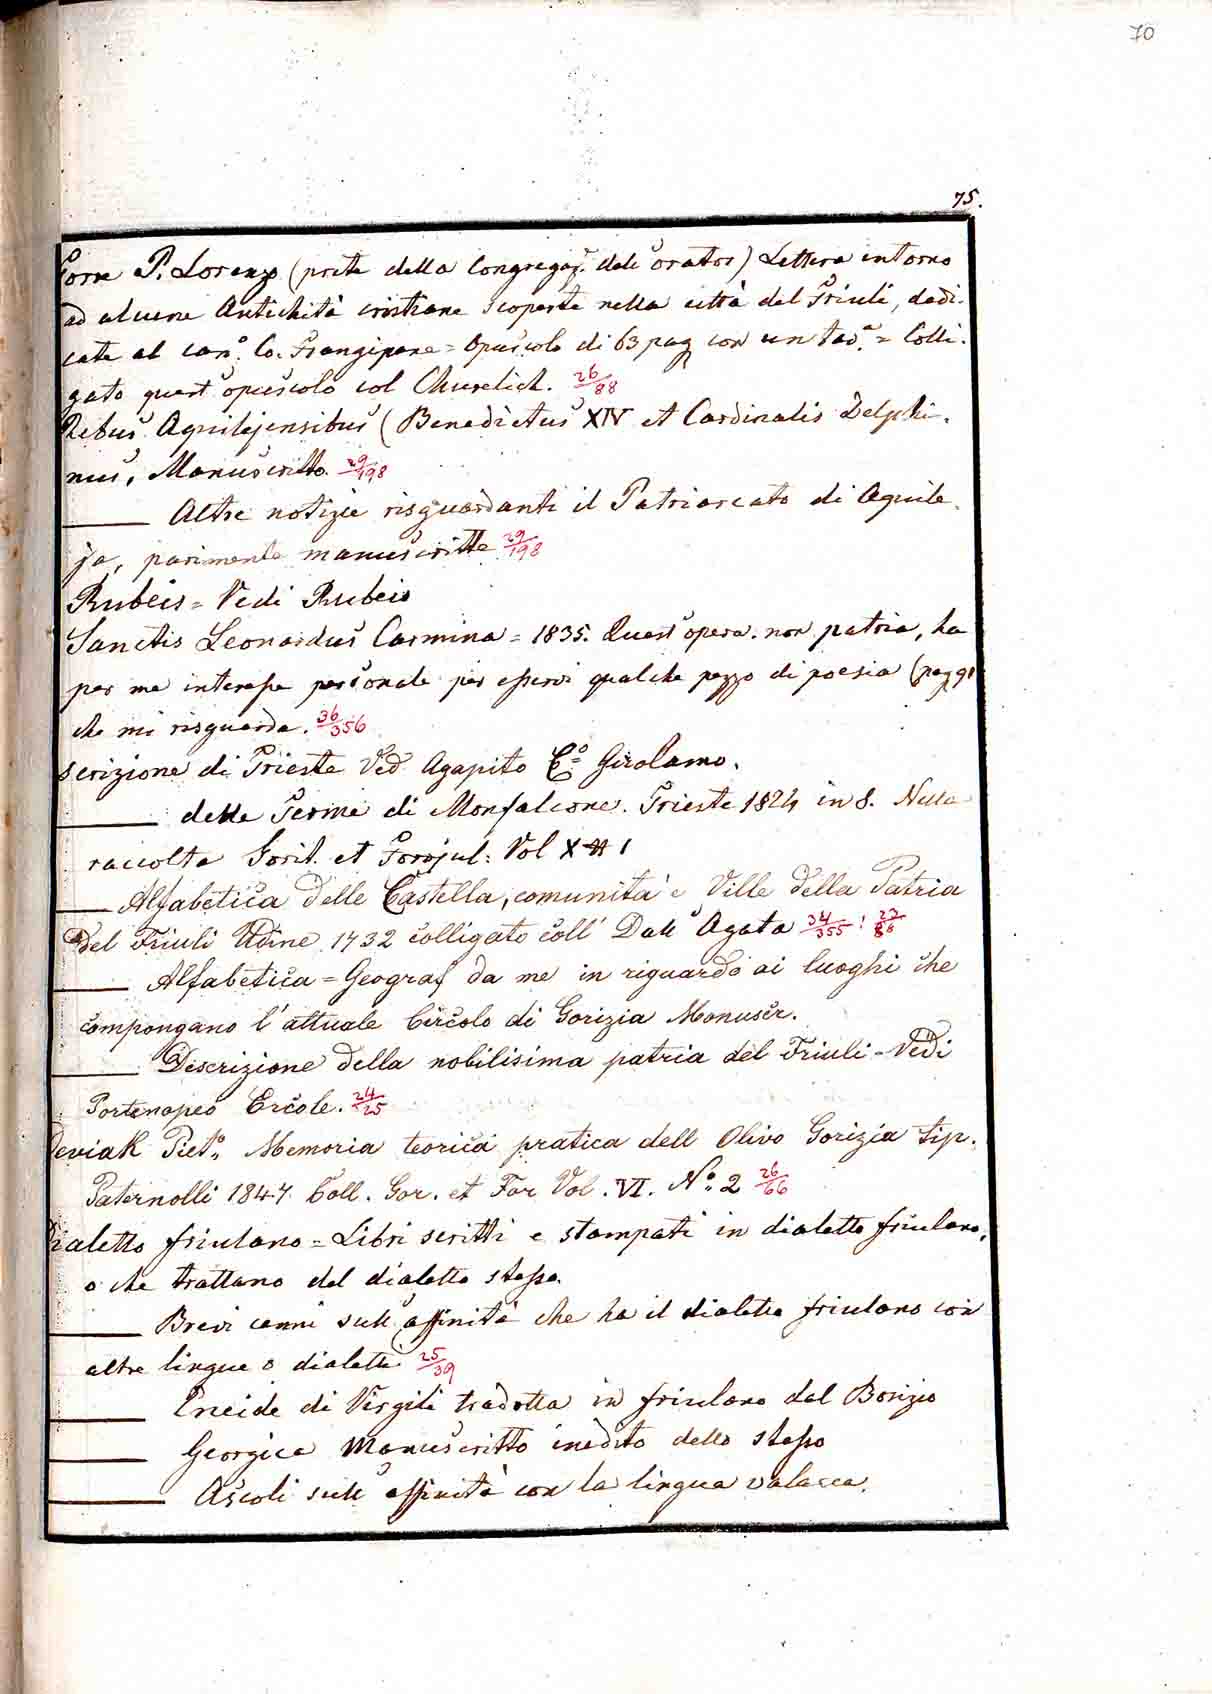 70
75.
Torre P. Lorenzo (prete della Congregaz. dell' orator) Lettera intorno
ad alcune Antichità cristiane scoperte nella città del Friuli, dedi-
cate al can.º Co. Frangipane = Opuscolo di 63 pag con un tav.ª = Colli-
gato quest' opuscolo col Churelich. 26/88
Rebus Aquilejensibus (Benedictus XIV et Cardinalis Delphi-
nus, Manuscritto. 29/198
Altre notizie risguardanti il Patriarcato di Aquile-
ja, parimente manuscritte 29/198
Rubeis = Vedi Rubeis
Sanctis Leonardus Carmina = 1835. Quest' opera. non patria, ha
per me interesse personale per esservi qualche pezzo di poesia (pag 91
che mi risguarda. 36/356
scrizione di Trieste Ved Agapito Cº Girolamo.
delle Terme di Monfalcone. Trieste 1824 in 8. Nella
raccolta Gorit. et Forojul: Vol X 1
Alfabetica delle Castella, comunita' e Ville della Patria
del Friuli Udine 1732 colligato coll' Dall' Agata 34/355 : 27/88
Alfabetica = Geograf da me in riguardo ai luoghi che
compongano l'attuale Circolo di Gorizia Manuscr.
Descrizione della nobilisima patria del Friuli = Vedi
Partenopeo Ercole. 24/25
Deviak Piet.º Memoria teorica pratica dell Olivo Gorizia tip.
Paternolli 1847 Coll. Gor. et For Vol. VI. Nº 2 26/66
Dialetto friulano = Libri scritti e stampati in dialetto friulano,
o che trattano del dialetto stesso.
Brevi cenni sull' affinità che ha il dialetto friulano con
altre lingue o dialetti 25/39
Eneide di Virgili tradotta in friulano dal Bosizio
Georgica Manuscritto inedito dello stesso
Ascoli sull' affinità con la lingua valacca.